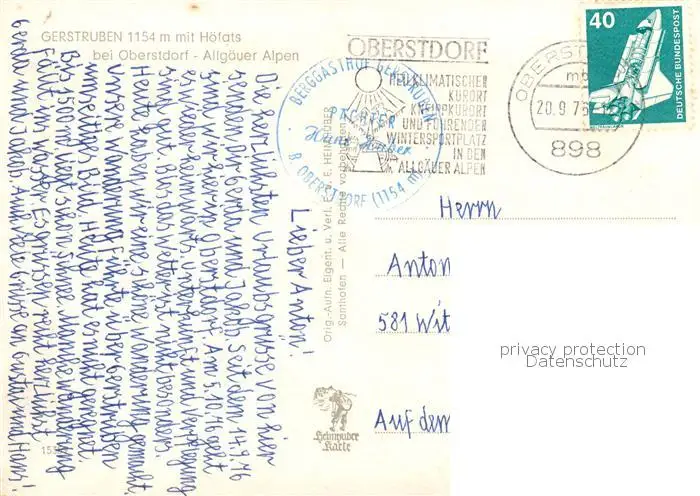 GERSTRUBEN 1154 m mit Höfats
bei Oberstdorf - Allgäuer Alpen
OBERSTDORF
HEILKLIMATISCHER
KURORT
KNEIPPKURORT
UND FÜHRENDER
WINTERSPORTPLATZ
IN DEN
ALLGÄUER ALPEN
BERGGASTHOF GERSTRUBEN
PÄCHTER
Hans Huber
B. OBERSTDORF (1154 m)
OBERSTDORF
20.9.76
898
40
DEUTSCHE BUNDESPOST
Lieber Anton!
Die herzlichsten Urlaubsgrüsse von hier
senden Dir Gerda und Jakob. Seit dem 14.9.76
sind wir hier in Oberstdorf. Am 5.10.76 geht
es wieder heimwärts. Unterkunft und Verpflegung
ist sehr gut. Bloss das Wetter ist nicht besonders.
Heute haben wir eine schöne Wanderung gemacht.
Unsere Wanderung führte über Gerstruben
umseitiges Bild. Heute hat es nicht geregnet.
Bis 15 Uhr hat schön Sonne. Unsere Wanderung
fällt ins Wasser. Es grüssen recht herzlichst
Gerda und Jakob. Auch viele Grüsse an Gustav und Hans!
Orig.-Aufn. Eigent. u. Verl. E. HEIMHUBER
Sonthofen — Alle Rechte vorbehalten
Heimhuber
Karte
Herrn
Anton
581 Wit
Auf dem
privacy protection
Datenschutz